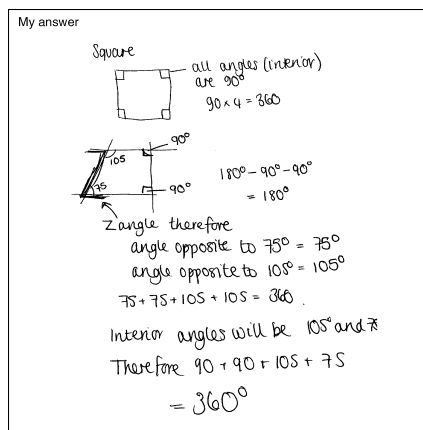 My answer
Square
all angles (interior)
are 90°
90 × 4 = 360
90°
105
180° - 90° - 90°
= 180°
75
90°
Z angle therefore
angle opposite to 75° = 75°
angle opposite to 105° = 105°
75 + 75 + 105 + 105 = 360.
Interior angles will be 105° and 75
Therefore 90 + 90 + 105 + 75
= 360°